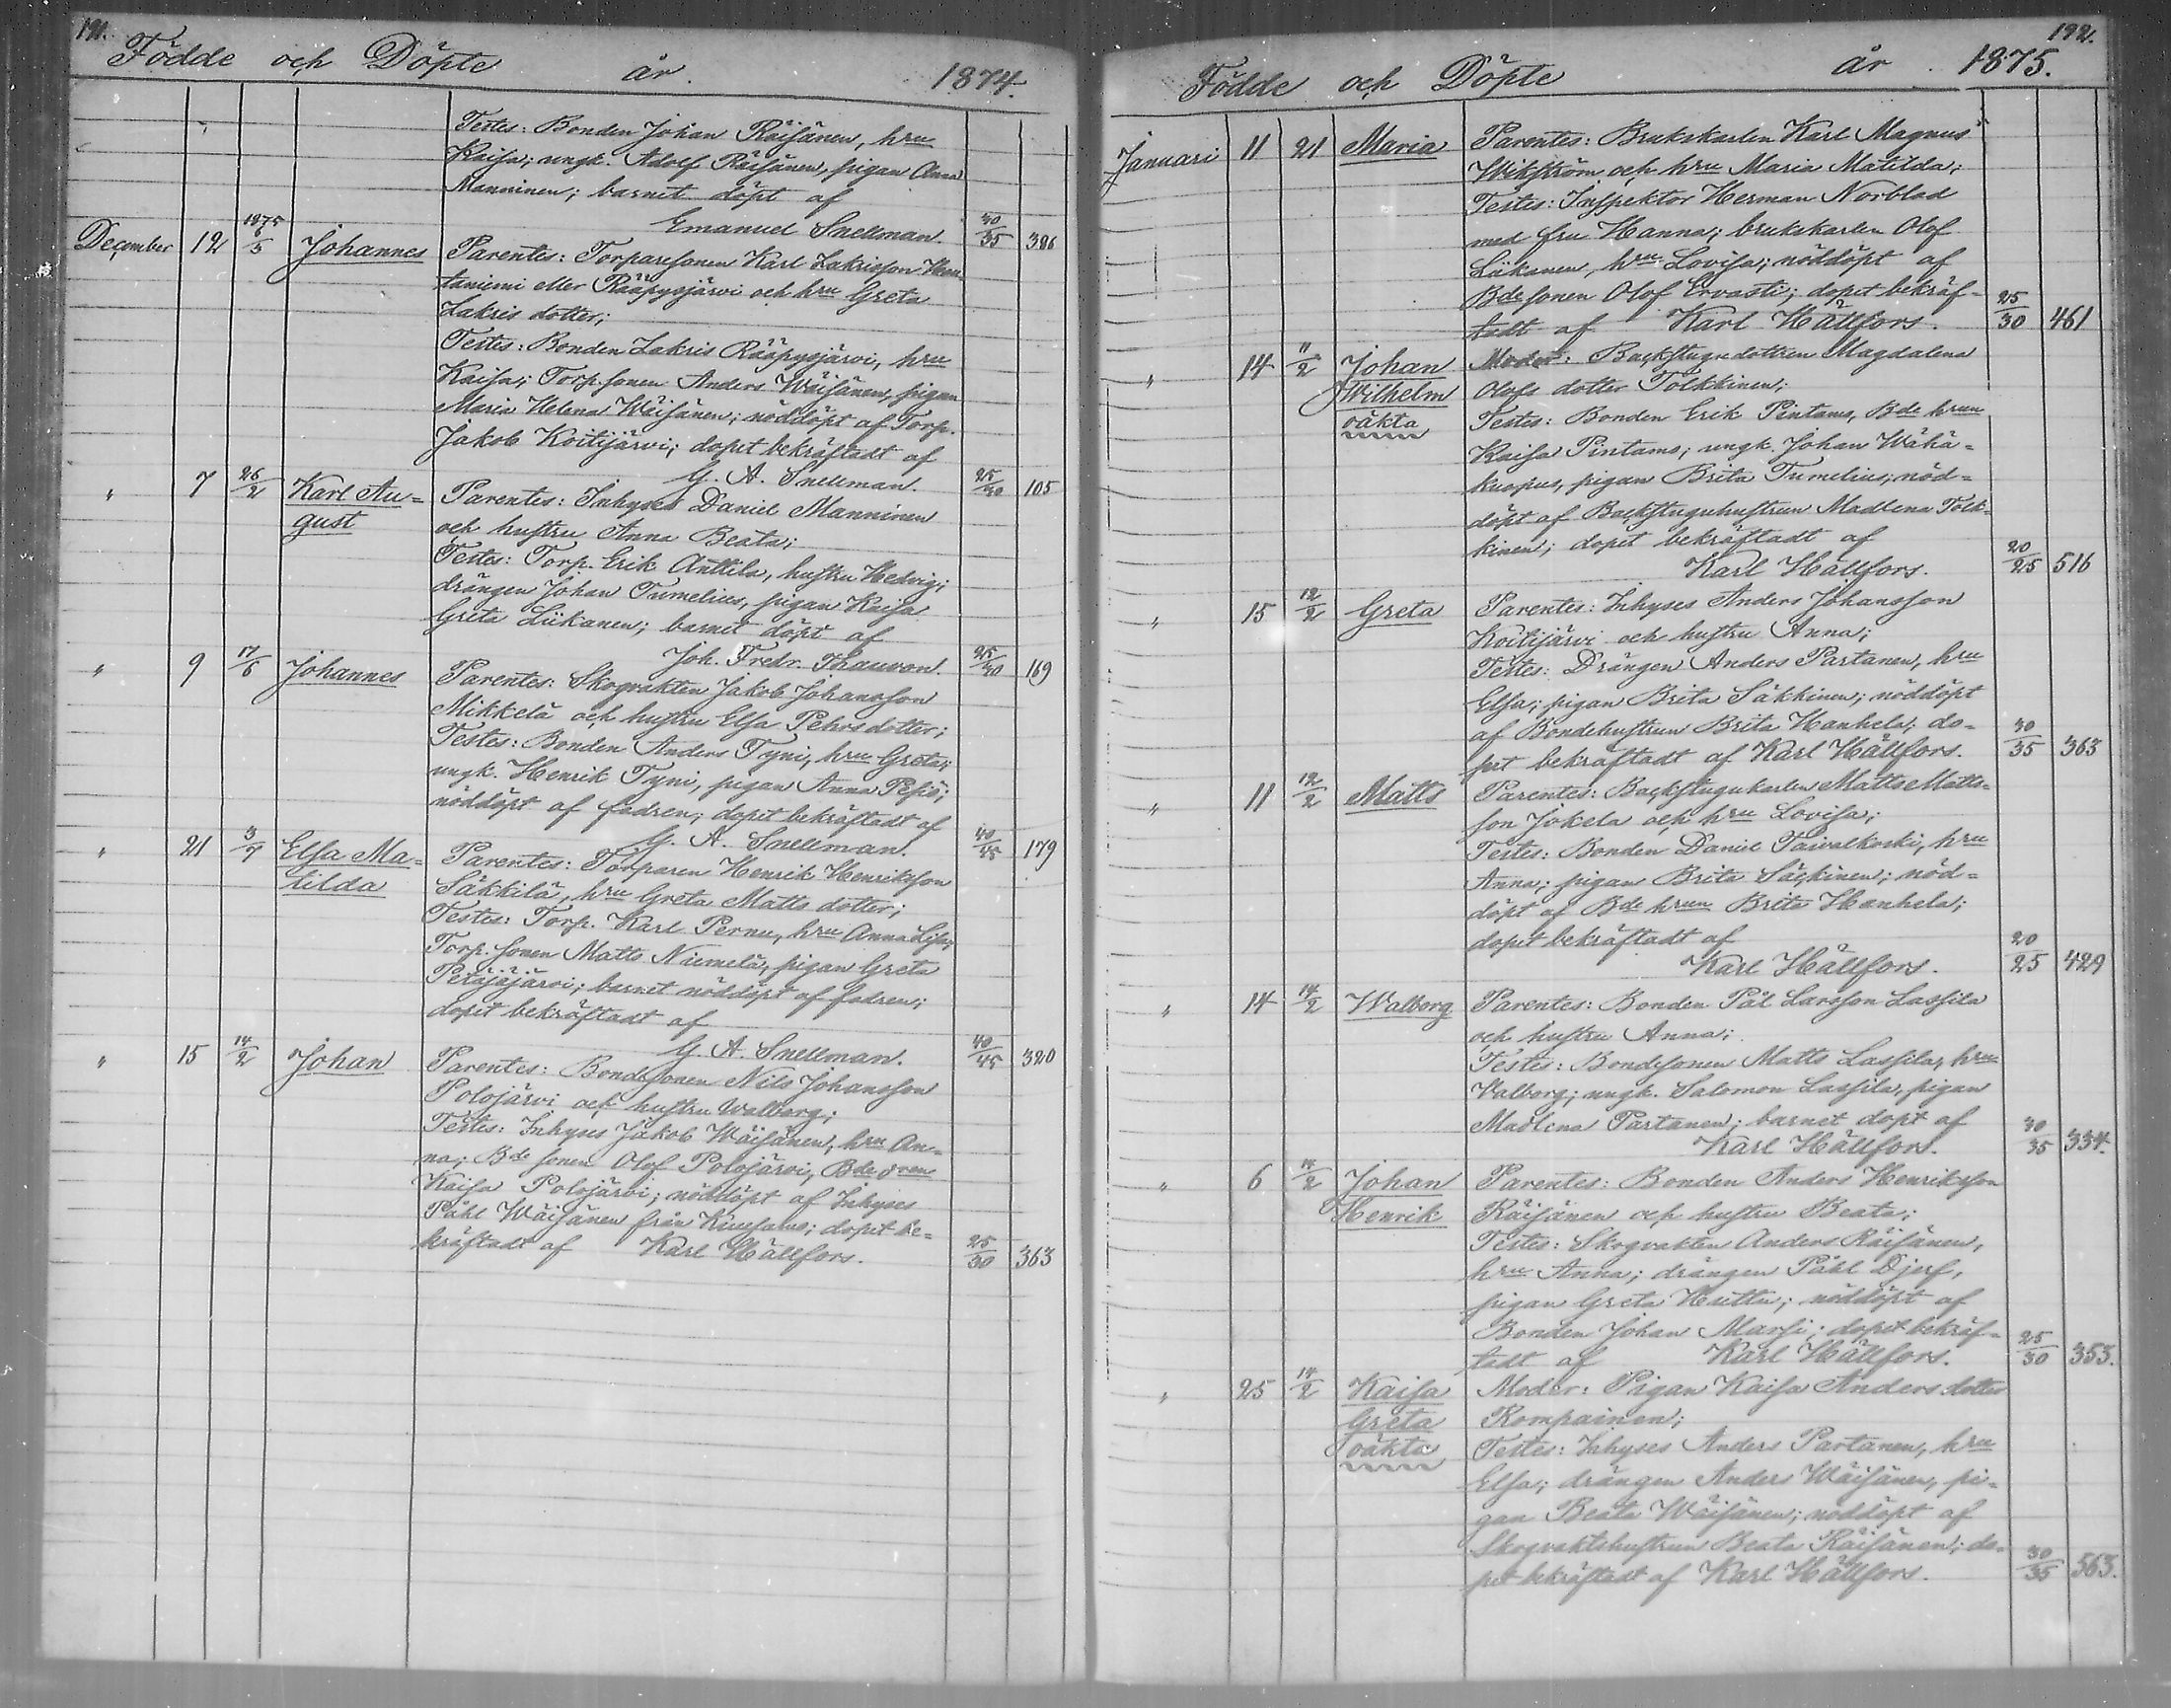 191.
Födde och Döpte år 1874.
Testes: Bonden Johan Räisänen, hru
Kaisa; ungk. Adolf Räisänen, pigan Anna
Manninen; barnet döpt af
Emanuel Snellman. 30/35 386
December 12 1875 6/5 Johannes Parentes: Torparesonen Karl Zakrisson
taniemi eller Rääpysjärvi och hru Greta
Zakris dotter;
Testes: Bonden Zakris Rääpysjärvi, hru
Kaisa; Torp. sonen Anders Wäisänen, pigan
Maria Helena Wäisänen; nöddöpt af Torp.
Jakob Koitijärvi; dopet bekräftadt af
G. A. Snellman. 25/30 105
" 7 26/2 Karl Au- Parentes: Inhyses Daniel Manninen
gust och hustru Anna Beata;
Testes: Torp. Erik Anttila, hustru Hedvig;
drängen Johan Tumelius, pigan Kaisa
Greta Liikanen; barnet döpt af
Joh. Fredr. Thauvon. 25/30 169
" 9 17/6 Johannes Parentes: Skogvakten Jakob Johansson
Mikkelä och hustru Elsa Pehrsdotter;
Testes: Bonden Anders Tyni, hru Greta;
ungk. Henrik Tyni, pigan Anna Pesiö;
nöddöpt af fadren; dopet bekräftadt af
G. A. Snellman. 40/45 179
" 21 3/7 Elsa Ma- Parentes: Torparen Henrik Henriksson
tilda Säkkilä, hru Greta Matts dotter;
Testes: Torp. Karl Pernu, hru Anna Lisa;
Torp. sonen Matts Niemelä, pigan Greta
Petäjäjärvi; barnet nöddöpt af fadren;
dopet bekräftadt af
G. A. Snellman. 40/45 320
" 15 14/2 Johan Parentes: Bondesonen Nils Johansson
Polojärvi och hustru Walborg;
Testes: Inhyses Jakob Wäisänen, hru An-
na; Bde sonen Olof Polojärvi, Bde
Kaisa Polojärvi; nöddöpt af Inhyses
Påhl Wäisänen från Kuusamo; dopet be-
kräftadt af Karl Hällfors. 25/30 363
192.
Födde och Döpte år 1875.
Januari 11 21 Maria Parentes: Brukskarlen Karl Magnus
Wikström och hru Maria Matilda;
Testes: Inspektor Herman Norblad
med fru Hanna; brukskarlen Olof
Liikanen, hru Lovisa; nöddöpt af
Bdesonen Olof Ervasti; dopet bekräf-
tadt af Karl Hällfors. 25/30 461
" 14 11/2 Johan Moder: Backstugudottren Magdalena
Wilhelm Olofs dotter Tolkkinen;
oäkta Testes: Bonden Erik Pintamo, Bde hrun
Kaisa Pintamo; ungk. Johan Wähä-
kuopus, pigan Brita Tumelius; nöd-
döpt af Backstuguhustrun Madlena Tolk-
kinen; dopet bekräftadt af
Karl Hällfors. 20/25 516
" 15 12/2 Greta Parentes: Inhyses Anders Johansson
Koitijärvi och hustru Anna;
Testes: Drängen Anders Partanen, hru
Elsa; pigan Brita Säkkinen; nöddöpt
af Bondehustrun Brita Hanhela; do-
pet bekräftadt af Karl Hällfors. 30/35 363
" 11 12/2 Matts Parentes: Backstugukarlen Matts Matts-
son Jokela och hru Lovisa;
Testes: Bonden Daniel Taivalkoski, hru
Anna; pigan Brita Säckinen; nöd-
döpt af Bde hrun Brita Hanhela;
dopet bekräftadt af
Karl Hällfors. 20/25 429
" 14 14/2 Walborg Parentes: Bonden Pål Larsson Lassila
och hustru Anna;
Testes: Bondesonen Matts Lassila, hru
Valborg; ungk. Salomon Lassila, pigan
Madlena Partanen; barnet döpt af
Karl Hällfors. 30/35 334.
" 6 14/2 Johan Parentes: Bonden Anders Henriksson
Henrik Räisänen och hustru Beata;
Testes: Skogvakten Anders Räisänen,
hru Anna; drängen Påhl Djerf,
pigan Greta Huttu; nöddöpt af
Bonden Johan Marsi; dopet bekräf-
tadt af Karl Hällfors. 25/30 353.
" 25 14/2 Kaisa Moder: Pigan Kaisa Anders dotter
Greta Kompainen;
oäkta Testes: Inhyses Anders Partanen, hru
Elsa; drängen Anders Wäisänen, pi-
gan Beata Wäisänen; nöddöpt af
Skogvaktshustrun Beata Räisänen; do-
pet bekräftadt af Karl Hällfors. 30/35 363.